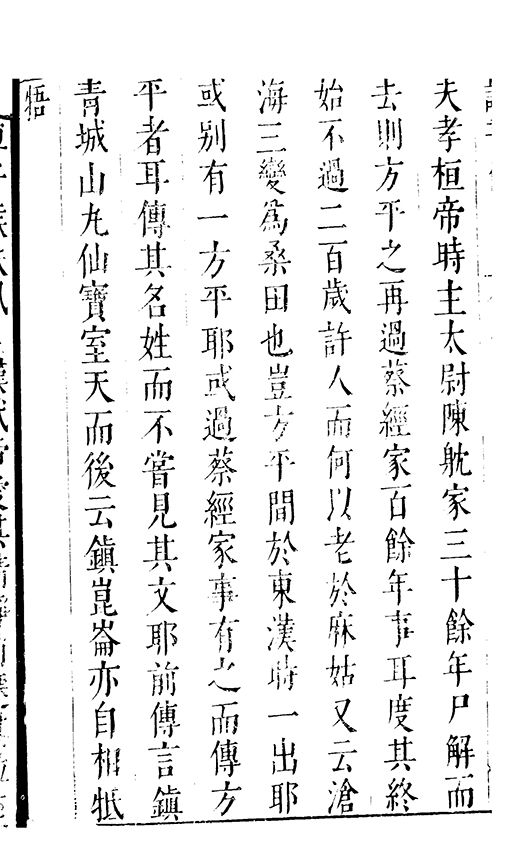 夫孝桓帝時主太尉陳躭家三十餘年尸解而
去則方平之再過蔡經家百餘年事耳度其終
始不過二百歲許人而何以老於麻姑又云滄
海三變為桑田也豈方平間於東漢時一出耶
或别有一方平耶或過蔡經家事有之而傳方
平者耳傳其名姓而不嘗見其文耶前傳言鎮
青城山九仙寶室天而後云鎮崑崙亦自相牴
牾